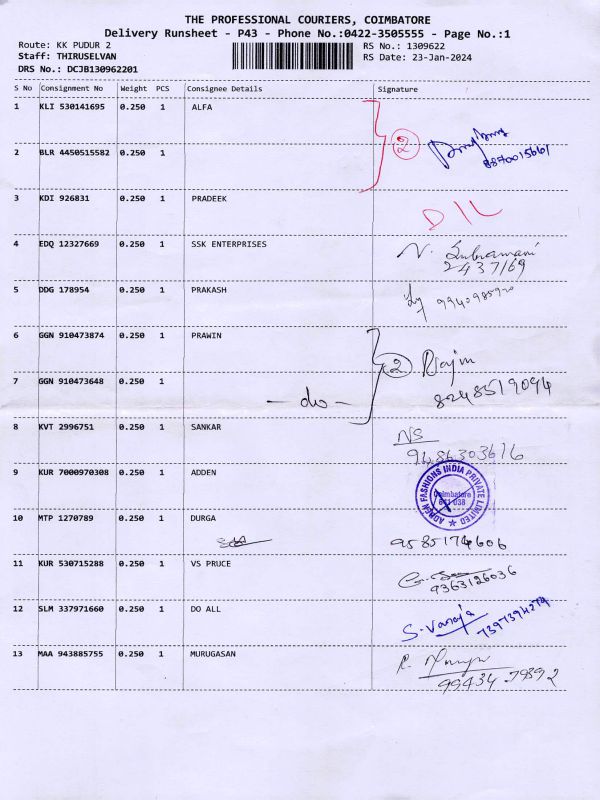 THE PROFESSIONAL COURIERS, COIMBATORE
Delivery Runsheet - P43 - Phone No.:0422-3505555 - Page No.:1
Route: KK PUDUR 2 RS No.: 1309622
Staff: THIRUSELVAN RS Date: 23-Jan-2024
DRS No.: DCJB130962201
S No Consignment No Weight PCS Consignee Details Signature
1 KLI 530141695 0.250 1 ALFA
2
8870015661
2 BLR 4450515582 0.250 1
3 KDI 926831 0.250 1 PRADEEK
D/L
4 EDQ 12327669 0.250 1 SSK ENTERPRISES N. Subramani
2437169
5 DDG 178954 0.250 1 PRAKASH
6 GGN 910473874 0.250 1 PRAWIN
2 Rajin
7 GGN 910473648 0.250 1
- do - 8248519094
8 KVT 2996751 0.250 1 SANKAR NS
9486303616
9 KUR 7000970308 0.250 1 ADDEN
ADREN FASHIONS INDIA PRIVATE LIMITED
Coimbatore
641 038
10 MTP 1270789 0.250 1 DURGA
9585174606
11 KUR 530715288 0.250 1 VS PRUCE
9363126036
12 SLM 337971660 0.250 1 DO ALL
S. Vanaja 7397394279
13 MAA 943885755 0.250 1 MURUGASAN
99434 79392